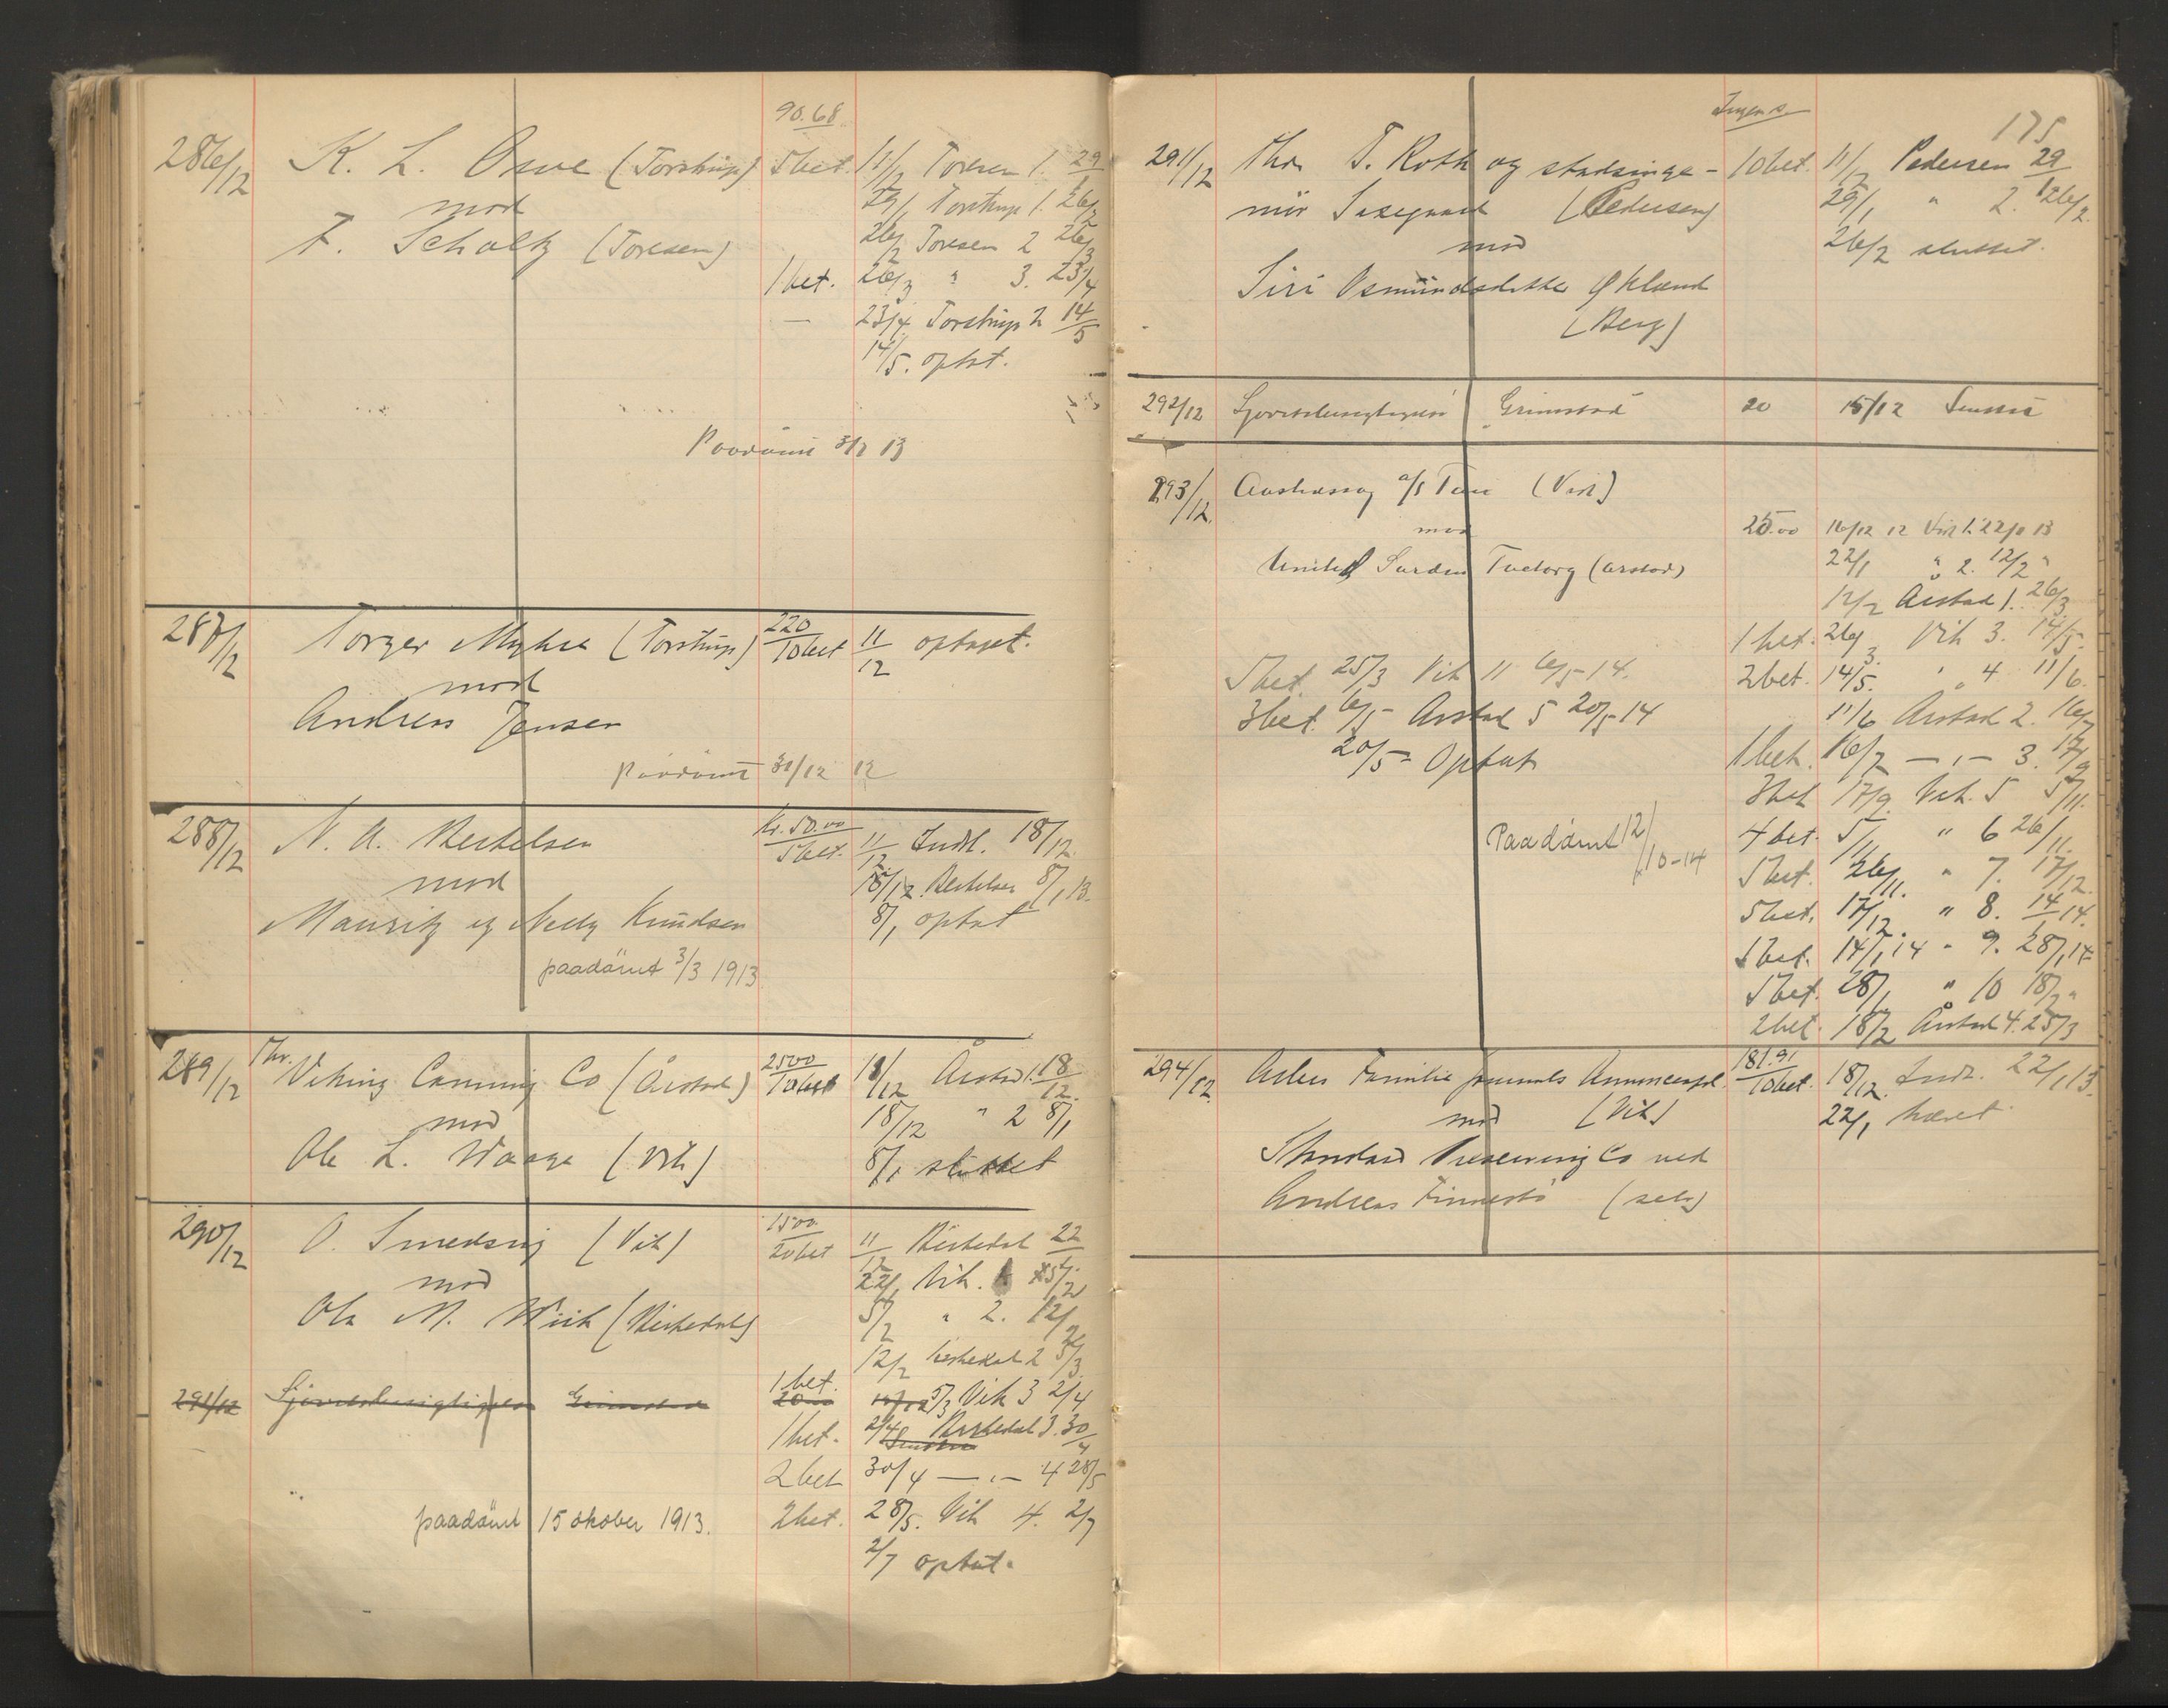 90.68
286/12 K. L. Osve (Torstrup) 5 bet. 11/12 Toresen 1. 29/1
mod 29/1 Torstrup 1. 26/2
F. Scholtz (Toresen) 26/2 Toresen 2 26/3
1 bet. 26/3 " 3. 23/4
— 23/4. Torstrup 2 14/5
14/5. optat.
Paadömt 3/7 13
287/12 Torger Myhre (Torstrup) 220 10 bet 11/12 optaget.
mod
Andreas Jensen
paadömt 31/12 12
288/12 N. A. Berkelsen Kr. 50.00 5 bet. 11/12 Indk. 18/12
mod 18/12. Berkelsen 8/1 13.
Mauritz og Nelly Knudsen 8/1 optat
paadömt 3/3 1913
289/12 Thr. Viking Canning Co (Årstad) 2500 10 bet 11/12 Årstad 1. 18/12.
mod 18/12 " 2 8/1
Ole L. Waage (Vik) 8/1 sluttet
290/12 O. Smedsvig (Vik) 1500 20 bet 11/12 Birkedal 22/1.
mod 22/1 Vik. 5/2
Ole M. Wiik (Birkedal) 5/2 " 2. 12/2
12/2 Birkedal 2 5/3
1 bet.
291/12 Sjöretsbesigtigelse Grimstad 20 5/3 Vik 3 2/4
1 bet. 2/4 Birkedal 3. 30/4
2 bet 30/4 — " — 4 28/5
paadömt 15 oktober 1913. 2 bet. 28/5. Vik 4. 2/7
2/7 optat.
175
291/12 Thr. T. Roth og stadsinge- 10 bet. 11/12 Pedersen 29/1
niör (Pedersen) 29/1 " 2. 26/2.
mod 26/2 sluttet.
Siri Osmundsdatter Økland
(Berg)
292/12 Sjöretsbesigtigelse Grimstad 20 15/12
293/12. a/s (Vik)
mod 25.00 16/12 12 Vik 1. 22/1 13
United Sardin Factory (Årstad) 22/1 " 2. 12/2 "
12/2 Årstad 1. 26/3
1 bet. 26/3. Vik 3. 14/5.
5 bet. 25/3 Vik 11 6/5-14. 2 bet. 14/5. " 4 11/6.
3 bet. 6/5 - Årstad 5 20/5-14 11/6 Årstad 2. 16/7
20/5 - Optat 1 bet. 16/7 — " — 3. 17/9
3 bet 17/9. Vik. 5 5/11.
Paadömt 12/10-14 4 bet. 5/11 " 6 26/11.
5 bet. 26/11. " 7. 17/12.
5 bet. 17/12. " 8. 14/1 14.
1 bet. 14/1 14 " 9. 28/1 14
5 bet. 28/1 " 10 18/2 "
2 bet. 18/2 Årstad 4. 25/3
294/12. Allers Familie Journals Annonceexp. 181.91 10 bet. 18/12. Indk. 22/1 13.
mod (Vik) 22/1 hævet
Standard Preserving Co ved
Andreas (selv)